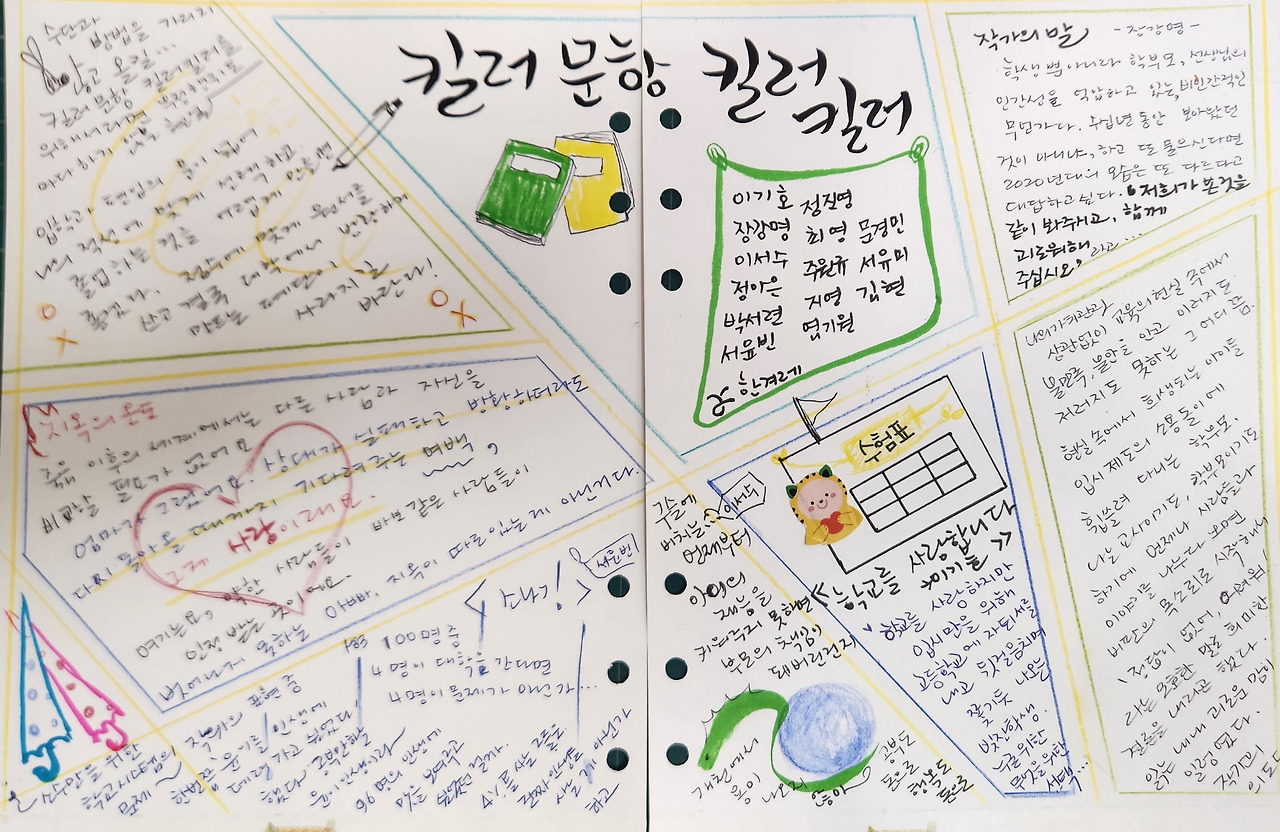 수단과 방법을 가리지
않고 올린...
킬러 문항 킬러킬러를
위해서라면 부정행위도
마다하지 않는 현실
입학하고 편입의 문이 넓어
나의 적성에 맞게 선택하고
졸업하는 것을 어렵게 만들면
좋겠다. 점수에 맞게 원서를
쓰고 결국 대학에서 방황하게
만드는 폐단이
사라지길
바란다!
킬러 문항 킬러
킬러
이기호 정진영
장강명 최영 문경민
이서수 주원규 서유미
정아은 지영 김현
박서련 염기원
서윤빈
한겨레
작가의 말 - 장강명 -
학생뿐 아니라 학부모, 선생님의
인간성을 억압하고 있는, 비인간적인
무언가다. 수십년 동안 보아왔던
것이 아니냐, 하고 또 물으신다면
2020년대의 모습은 또 다르다고
대답하고 싶다. 저희가 본 것을
같이 봐주시고, 함께
괴로워해
주십시오, 라고...
나의 가치관과
상관없이 교육의 현실 속에서
불만족, 불안을 안고 이러지도
저러지도 못하는 그 어디쯤.
현실 속에서 희생되는 아이들
입시 제도의 소용돌이에
휩쓸려 다니는 학부모.
나는 교사이기도, 학부모이기도
하기에 언제나 사람들과
이야기를 나누다 보면
비판의 목소리로 시작해서
'정답이 없어, 어려워!'
라는 모호한 말로 희미한
결론을 내리곤 했다.
읽는 내내 괴로운 맘이
일렁였다.
지옥의 온도
죽음 이후의 세계에서는 다른 사람과 자신을
비교할 필요가 없어요
엄마가 그랬어요. 상대가 실패하고 방황하더라도
다시 돌아올 때까지 기다려주는 여백,
그게 사랑이래요.
여기는요, 착한 사람들이 바보 같은 사람들이
인정 받는 곳이에요
벗어나지 못하는 아빠. 지옥이 따로 있는게 아닌거다.
<소나기!>
서윤빈
183 100명 중
4명이 대학을 간다면
4명이 문제가 아닌가...
소수만을 위한
학교시스템의
문제~
작가의 표현 중
한번쯤 '윤이를 인생에
데려가고 싶었다'
했다. 궁금했을
윤이 인생이라
96명의 인생에
맛을 보여주고
싶었던 걸까.
4%를 사는 그들은
진짜 인생을
사는 게 아닌가
하고
구슬에
비치는
이서수
언제부터
아이의
재능을
키워주지 못하면
부모의 책임이
돼버린건지
개천에서
용이 나오지
않아
공부도
돈으로
행복도
돈으로
수험표
<학교를 사랑합니다
이기호>
학교를 사랑하지만
입시만을 위해
고등학교에 자퇴서를
내고 뒷걸음치며
쫓기듯 나온
빗진학생.
누굴위한
무엇을위한
선택...